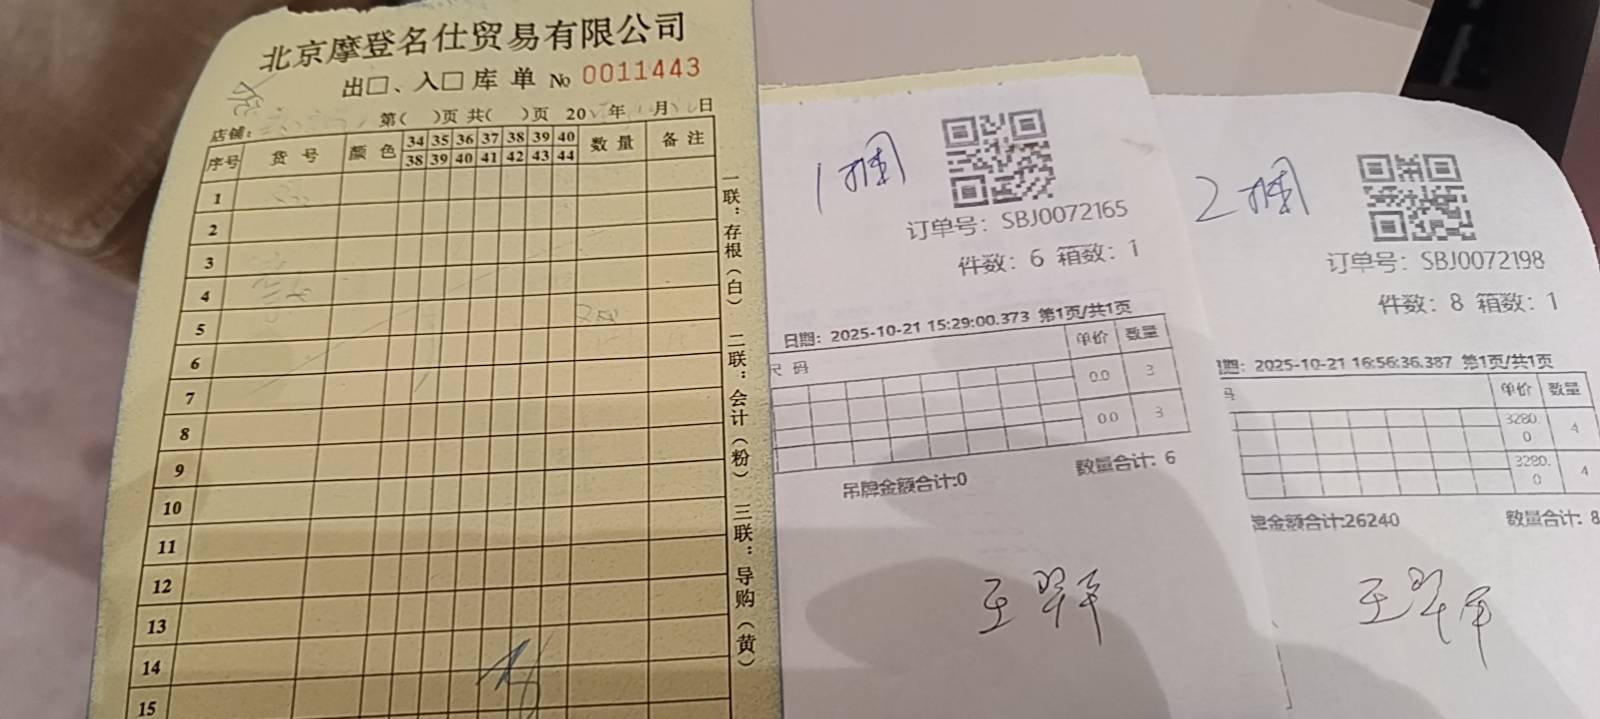 北京摩登名仕贸易有限公司
出□、入□库单 No 0011443
第( )页 共( )页 20 年 月 日
店铺:
序号 货号 颜色 34 35 36 37 38 39 40 数量 备注
38 39 40 41 42 43 44
1
2
3
4
5
250
6
7
8
9
10
11
12
13
14
15
一联:存根(白) 二联:会计(粉) 三联:导购(黄)
1捆
订单号: SBJ0072165
件数: 6 箱数: 1
日期: 2025-10-21 15:29:00.373 第1页/共1页
尺码 单价 数量
0.0 3
0.0 3
吊牌金额合计:0 数量合计: 6
2捆
订单号: SBJ0072198
件数: 8 箱数: 1
期: 2025-10-21 16:56:36.387 第1页/共1页
码 单价 数量
3280.0 4
3280.0 4
牌金额合计:26240 数量合计: 8